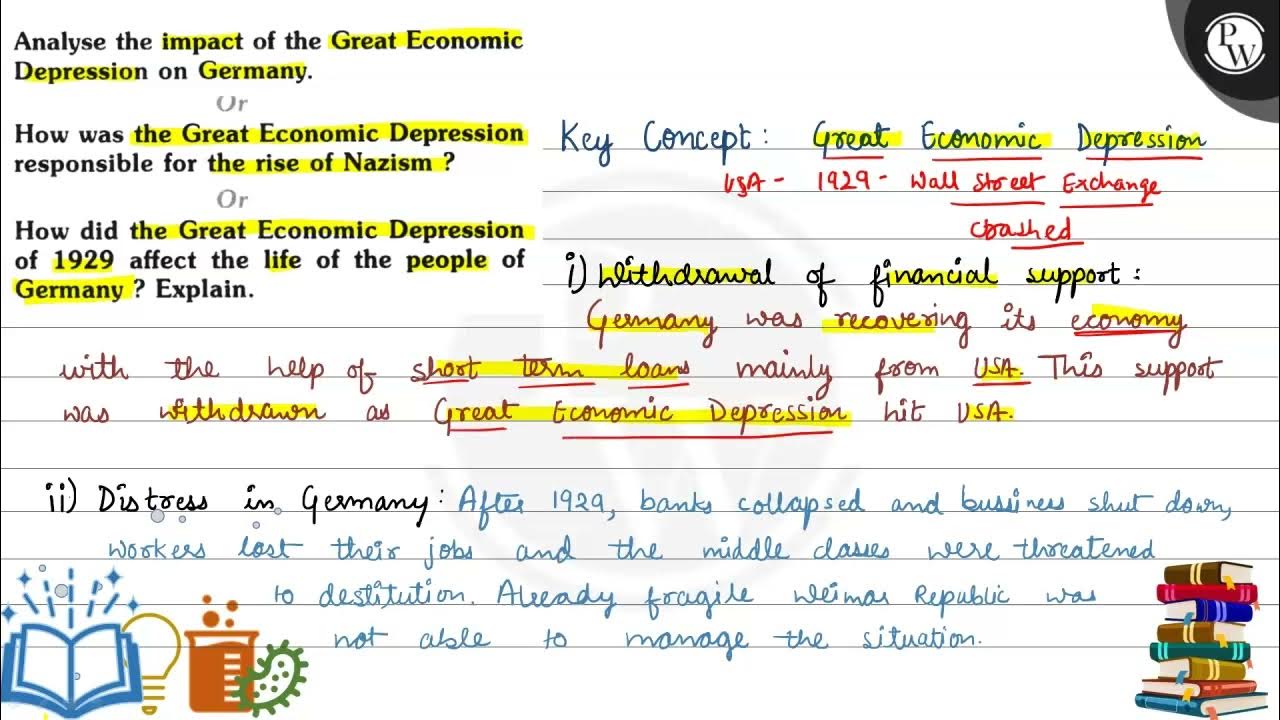 Analyse the impact of the Great Economic
Depression on Germany.
Or
How was the Great Economic Depression
responsible for the rise of Nazism ?
Or
How did the Great Economic Depression
of 1929 affect the life of the people of
Germany ? Explain.
PW
Key Concept : Great Economic Depression
USA - 1929 - Wall Street Exchange
crashed
i) Withdrawal of financial support :
Germany was recovering its economy
with the help of short term loans mainly from USA. This support
was withdrawn as Great Economic Depression hit USA.
ii) Distress in Germany : After 1929, banks collapsed and bussiness shut down,
workers lost their jobs and the middle classes were threatened
to destitution. Already fragile Weimar Republic was
not able to manage the situation.